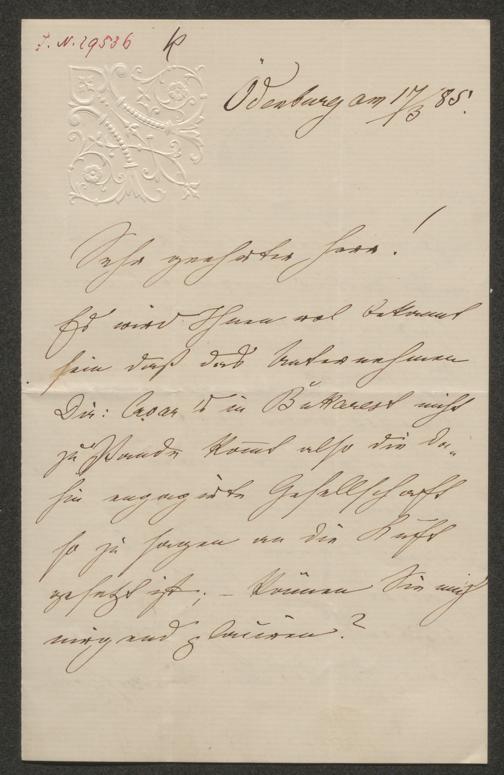 I. N. 29536
Ödenburg am 17/3 85.
Sehr geehrter Herr!
Es wird Ihnen wol bekannt
sein daß das Unternehmen
Dir: in Bukarest nicht
zu Stande kommt also die da„
hin engagirte Gesellschaft
so zu sagen an die Luft
gesetzt ist; – können Sie mich
nirgend placiren?